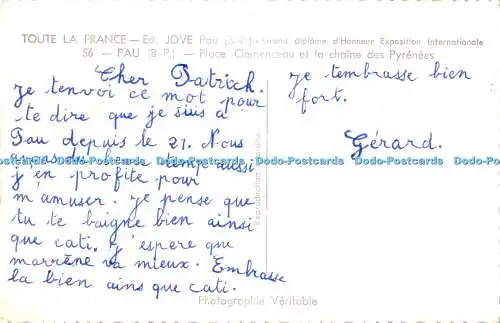 TOUTE LA FRANCE — Ed. JOVE Pau (B.-P.) - Grand diplôme d'Honneur Exposition Internationale
56 — PAU (B-P.) — Place Clemenceau et la chaîne des Pyrénées
Cher Patrick.
Je tenvoi ce mot pour
te dire que je suis a
Pau depuis le 21. Nous
temps aussi
j'en profite pour
m'amuser. je pense que
tu te baigne bien ainsi
que cati. j'espere que
marrène va mieux. Embrasse
la bien ains que cati.
je tembrasse bien
fort.
Gérard.
Reproduction interdite
Dodo-Postcards Dodo-Postcards Dodo-Postcards Dodo-Postcards Dodo-Postcards Dodo-Postcards
Photographie Véritable